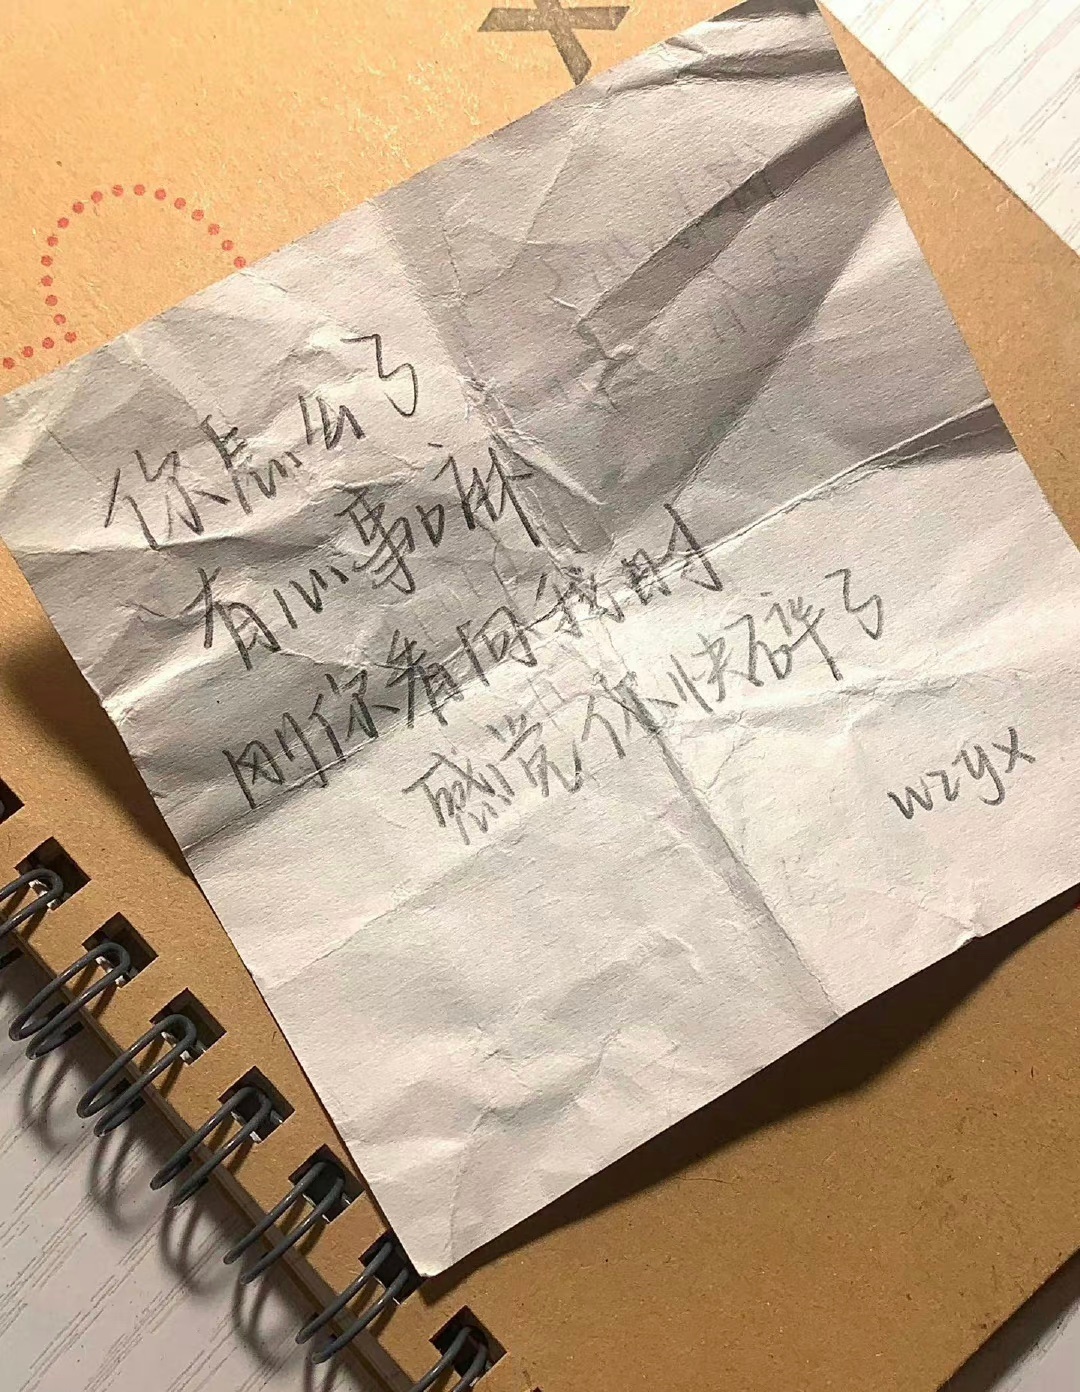 你怎么了
有心事嘛
刚你看向我时
感觉你快碎了
wzyx